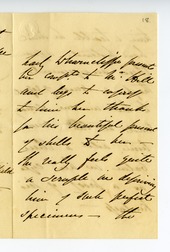 18
Lady Wharncliffe presents
her compts to Mr Hill
and begs to express
to him her thanks
for his beautiful present
of shells to her —
She really feels quite
a scruple in depriving
him of such perfect
specimens — the